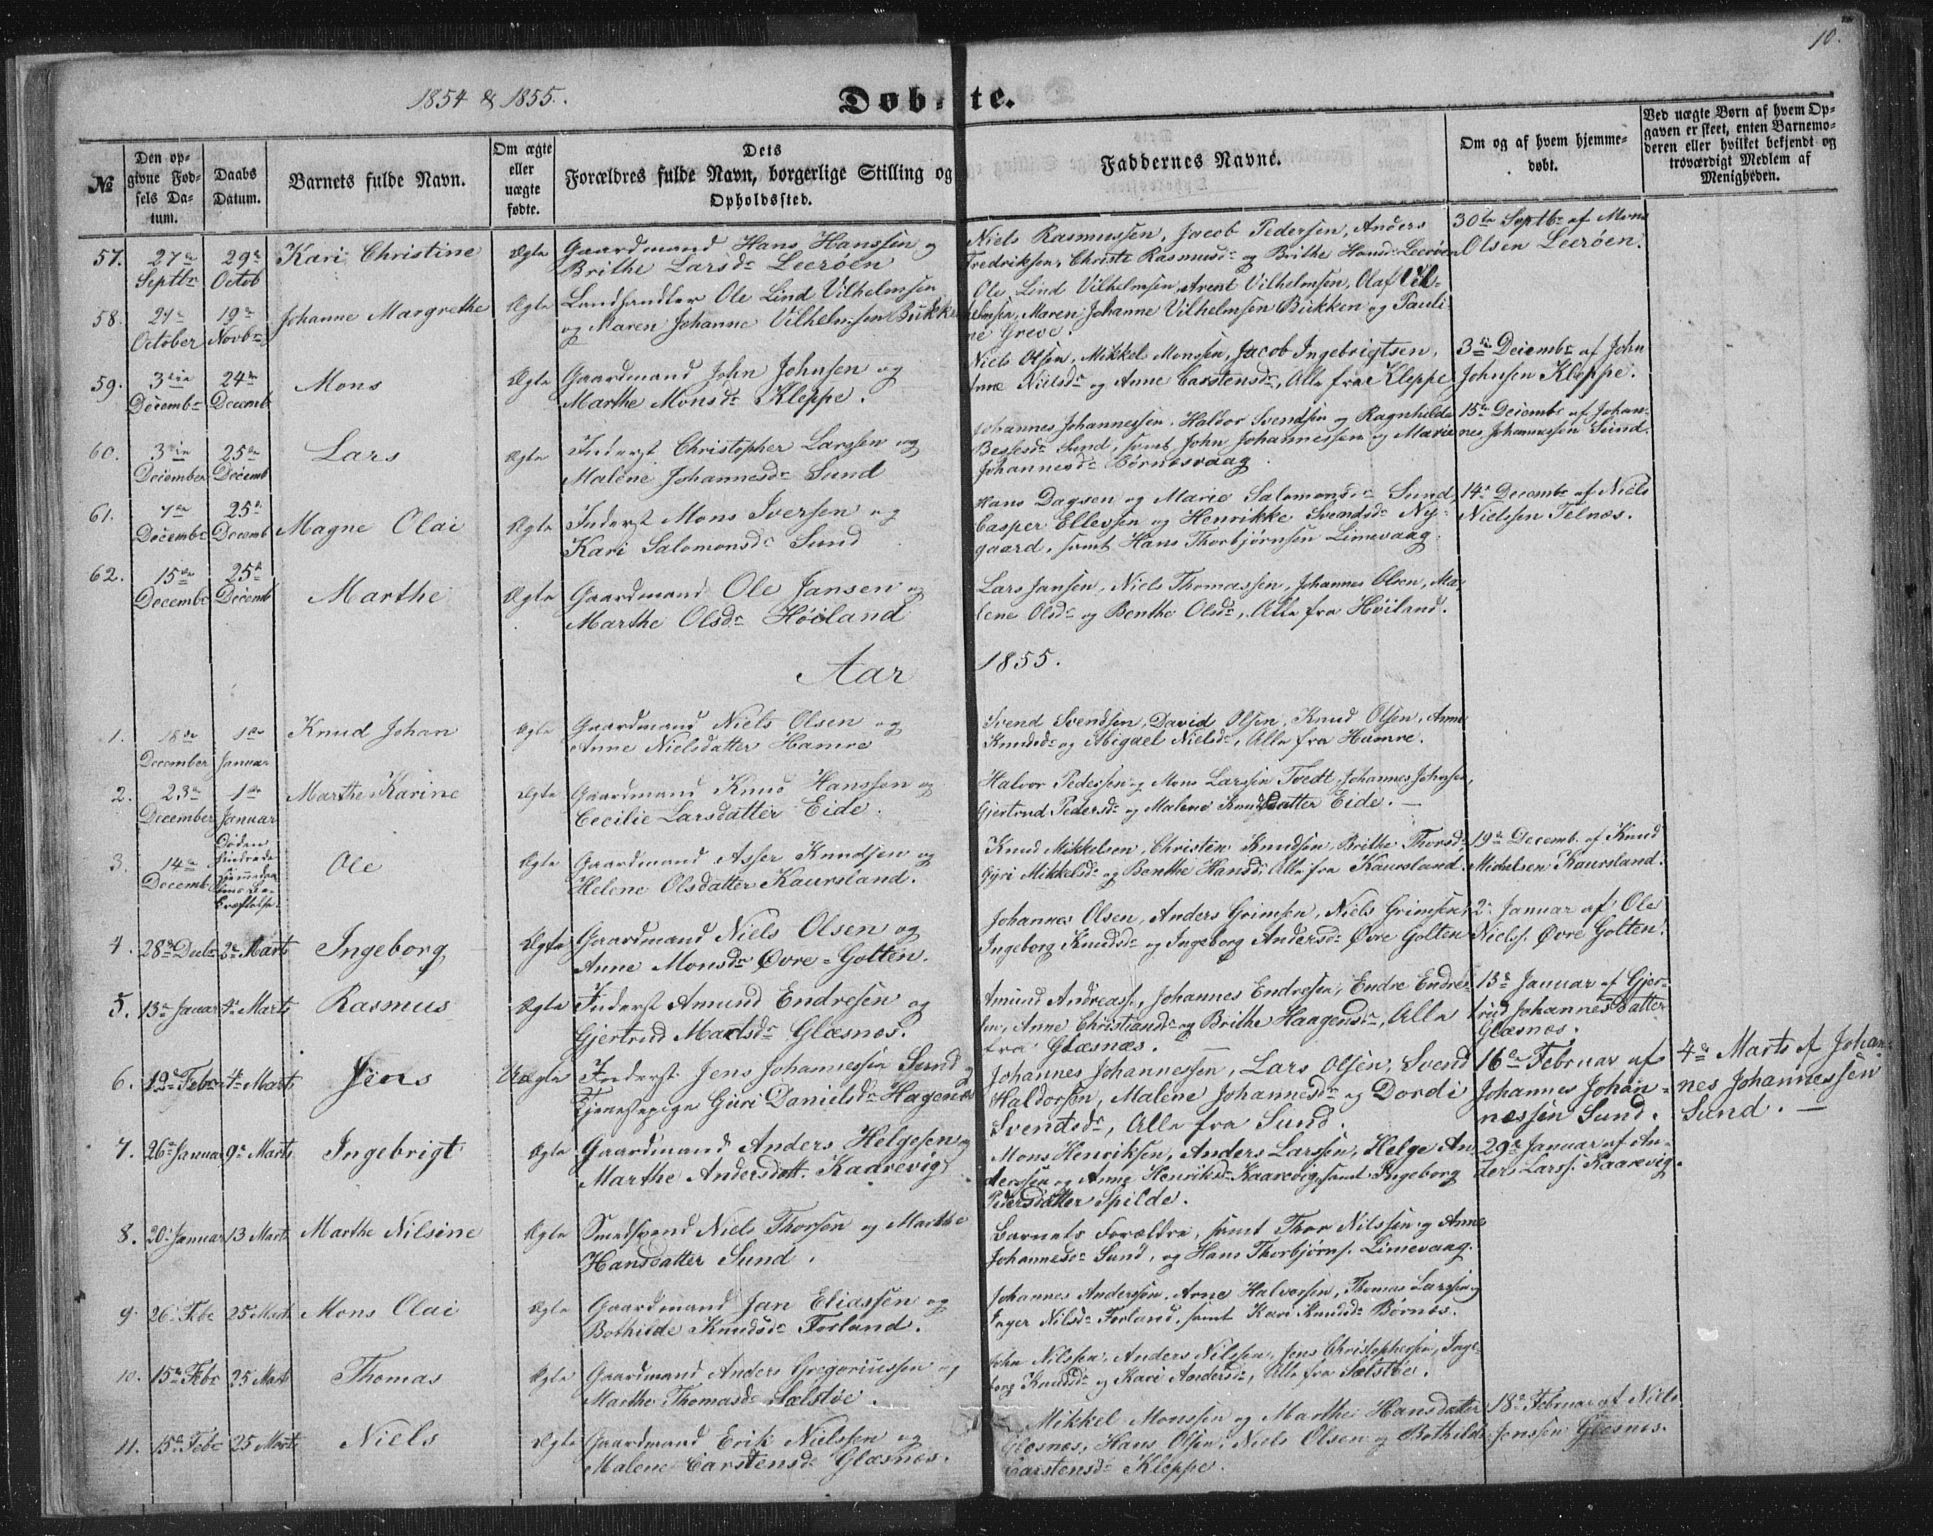 10.
1854 & 1855.
Døbte.
№
Den op-
givne Fød-
sels Da-
tum.
Daabs
Datum.
Barnets fulde Navn.
Om ægte
eller
uægte
fødte.
Dets
Forældres fulde Navn, borgerlige Stilling og
Opholdssted.
Faddernes Navne.
Om og af hvem hjemme-
døbt.
Ved uægte Børn af hvem Op-
gaven er skeet, enten Barnemo-
deren eller hvilket bekjendt og
troværdigt Medlem af
Menigheden.
57. 27de 29de Kari Christine Ægte Gaardmand Hans Hanssen og
Septbr Octob Brithe Larsdr Leerøen
Niels Rasmussen, Jacob Pedersen, Anders
Fredriksen, Christi Rasmusdr og Brithe Hansdr Leerøen
30te Septbr af Mons
Olsen Leerøen.
58. 21de 19de Johanne Margrethe Ægte Landhandler Ole Lind Vilhelmsen
October Novbr og Maren Johanne Vilhelmsen Bukken
Ole Lind Vilhelmsen, Arent Vilhelmsen, Olaf Vil-
helmsen, Maren Johanne Vilhelmsen Bukken og Pauli-
ne Greve.
59. 3die 24de Mons Ægte Gaardmand John Johnsen og
Decembr Decemb Marthe Monsdr Kleppe.
Niels Olsen, Mikkel Monsen, Jacob Ingebrigtsen,
Anne Nielsdr og Anne Carstensdr, Alle fra Kleppe
3die Decembr af John
Johnsen Kleppe.
60. 3die 25de Lars Ægte Inderst Christopher Larssen og
December Decemb Malene Johannesdr Sund
Johannes Johannessen, Haldor Svendsen og Ragnhilde
Sund, samt John Johannessen og Marie
Johannesdr Børnesvaag.
15de Decembr af Johan-
nes Johannessen Sund.
61. 7de 25de Magne Olai Ægte Inderst Mons Iversen og
Decembr Decemb Kari Salomonsdr Sund
Hans Dagsen og Marie Salomonsdr Sund
Casper Ellevsen og Henrikke Svendsdr Ny-
gaard, samt Hans Thorbjørnsen Limevaag.
14de Decembr af Niels
Nielssen Telnæs.
62. 15de 25de Marthe Ægte Gaardmand Ole Jansen og
Decembr Decemb Marthe Olsdr Høiland
Lars Jansen, Niels Thomassen, Johannes Olsen, Ma-
lene Olsdr og Benthe Olsdr, Alle fra Høiland.
Aar 1855.
1. 18de 1ste Knud Johan Ægte Gaardmand Niels Olsen og
December Januar Anne Nielsdatter Hamre
Svend Svendsen, David Olsen, Knud Olsen, Anne
Knudsdr og Abigael Nielsdr, Alle fra Hamre.
2. 23de 1ste Marthe Karine Ægte Gaardmand Knud Hanssen og
December Januar Cecilie Larsdatter Eide.
Halvor Pedersen og Mons Larssen Tvedt, Johannes Johnsen,
Gjertrud Pedersdr og Malene Knudsdatter Eide. —
3. 14de Døden Ole Ægte Gaardmand Asser Knudsen og
Decemb. hindrede Helene Olsdatter Kaursland.
Knud Mikkelsen, Christen Knudsen, Brithe Thorsdr,
Gyri Mikkelsdr og Benthe Hansdr, Alle fra Kaursland.
19de Decemb. af Knud
Mickelsen Kaursland.
4. 28de Decbr 2de Marts Ingeborg Ægte Gaardmand Niels Olsen og
Anne Monsdr Øvre-Golten.
Johannes Olsen, Anders Grimsen, Niels Grimsen,
Ingeborg Knudsdr og Ingeborg Andersdr Øvre Golten
2. Januar af Ole
Nielss. Øvre Golten.
5. 13de Januar 4de Marts Rasmus Ægte Inderst Amund Endresen og
Gjertrud Madsdr Glæsnæs.
Amund Andreass., Johannes Endresen, Endre Endre-
sen, Anne Christiansdr og Brithe Haagensdr, Alle
fra Glæsnæs. —
13de Januar af Gjer-
trud Johannesdatter
Glæsnæs.
6. 12te Febr 4de Marts Jens Uægte Inderst Jens Johannessen Sund
Tjenestepige Guri Danielsdr Hagenæs
Johannes Johannessen, Lars Olsen, Svend
Haldorsen, Malene Johannesdr og Dordi
Svendsdr, Alle fra Sund.
16de Februar af
Johannes Johan-
nessen Sund.
4de Marts af Johan-
nes Johannessen
Sund. —
7. 26de Januar 9de Marts Ingebrigt Ægte Gaardmand Anders Helgesen og
Marthe Andersdatt. Kaarevig
Mons Henriksen, Anders Larssen, Helge An-
derssen og Anne Henriksdr Kaarevig, samt Ingeborg
Pedersdatter Spilde.
29de Januar af An-
ders Larss. Kaarevig.
8. 20de Januar 13 Marts Marthe Nilsine Ægte Smedsvend Niels Thorsen og Marthe
Hansdatter Sund.
Barnets Forældre, samt Thor Nilssen og Anne
Johannesdr Sund, og Hans Thorbjørns. Limevaag.
9. 26de Febr 25 Marts Mons Olai Ægte Gaardmand Jan Eliassen og
Bothilde Knudsdr Forland.
Johannes Anderssen, Arne Halvorsen, Thomas Larssen og
Inger Nilsdr Forland, samt Kari Knudsdr Børnæs.
10. 15de Febr 25 Marts Thomas Ægte Gaardmand Anders Gregoriussen og
Marthe Thomasdr Sælstøe.
John Nilssen, Anders Nilssen, Jens Christophersen, Inge-
borg Knudsdr og Kari Andersdr, Alle fra Sælstøe.
11. 15de Febr 25 Marts Niels Ægte Gaardmand Erik Nielssen og
Malene Carstensdr Glæsnæs.
Mikkel Monssen og Marthe Hansdatter
Glæsnæs, Hans Olsen, Niels Olsen og Bothilde
Carstensdr Kleppe.
18de Februar af Niels
Jenssen Glæsnæs.